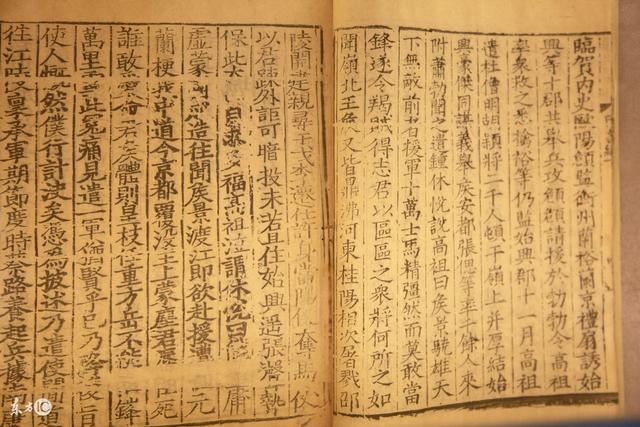 臨賀內史歐陽頠監衡州蘭裕蘭京禮扇誘始
興等十郡共舉兵攻頠頠請援於勃勃令高祖
率衆救之悉擒裕等仍監始興郡十一月高祖
遣杜僧明胡穎將二千人頓于嶺上并厚結始
興豪傑同謀義舉侯安都張偲等率千餘人來
附蕭勃聞之遣鍾休悅說高祖曰侯景驍雄天
下無敵前者援軍十萬士馬精彊然而莫敢當
鋒遂令羯賊得志君以區區之衆將何所之如
聞嶺北王侯又皆鼎沸河東桂陽相次屠戮邵
陵開建親尋干戈李遷仕許身當陽便奪馬仗
以君疎外詎可暗投未若且住始興遙張聲勢
保此太山自求多福高祖泣謂休悅曰庸
虛蒙國造往聞侯景渡江即欲赴援遭元
蘭梗我中道今京都覆沒主上蒙塵君辱臣死
誰敢愛命君侯體則皇枝任重方岳不能鋒
萬里雪此冤痛見遣一軍猶賢乎已乃降後旨
使人慨然僕行計決矣憑爲披述乃遣使間道
往江陵稟承軍期節度時蔡路養起兵據南康
东方IC